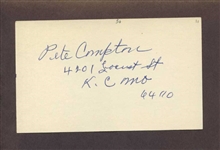 Pete Compton
4201 Locust St
K.C MO
64110